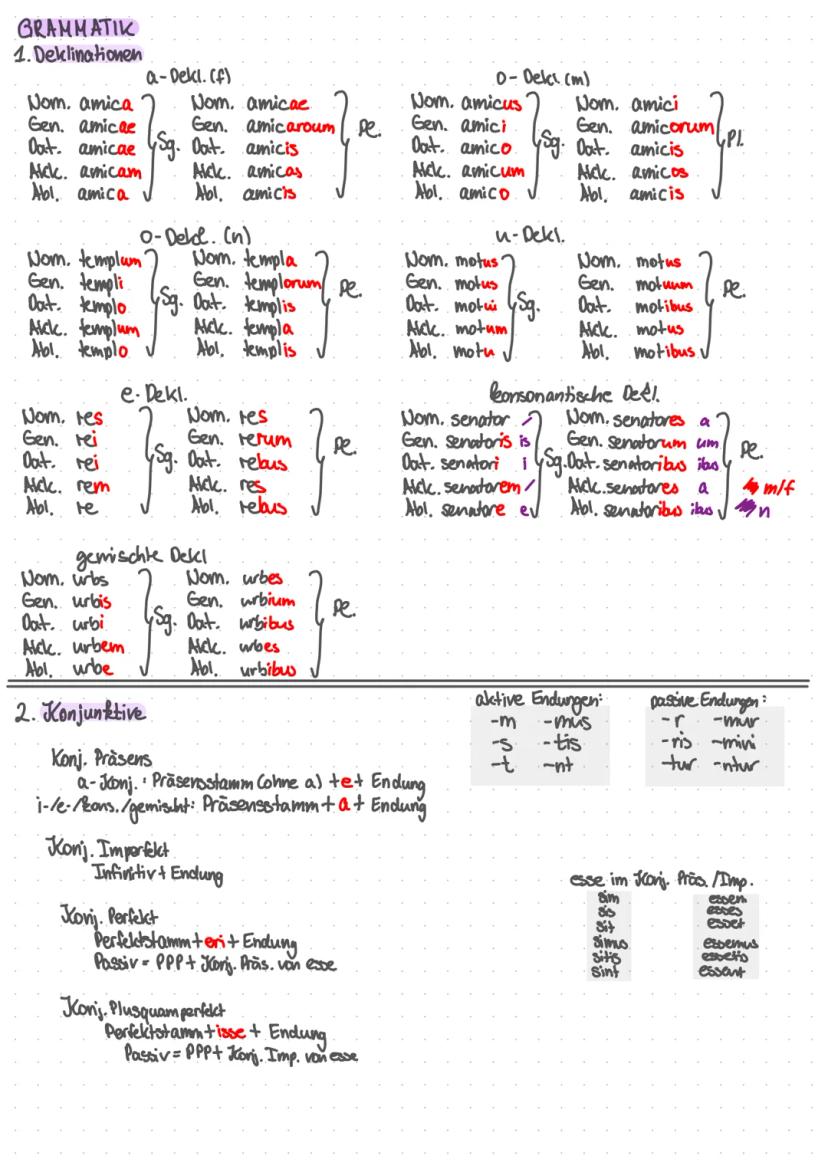 GRAMMATIK
1. Deklinationen
a-Dekl. (f)
Nom. amica
Gen. amicae
Dat. amicae
Akk. amicam
Abl. amica
Sg.
Nom. amicae
Gen. amicaroum
Dat. amicis
Akk. amicas
Abl. amicis
Pl.
o-Dekl. (m)
Nom. amicus
Gen. amici
Dat. amico
Akk. amicum
Abl. amico
Sg.
Nom. amici
Gen. amicorum
Dat. amicis
Akk. amicos
Abl. amicis
Pl.
o-Dekl. (n)
Nom. templum
Gen. templi
Dat. templo
Akk. templum
Abl. templo
Sg.
Nom. templa
Gen. templorum
Dat. templis
Akk. templa
Abl. templis
Pl.
u-Dekl.
Nom. motus
Gen. motus
Dat. motui
Akk. motum
Abl. motu
Sg.
Nom. motus
Gen. motuum
Dat. motibus
Akk. motus
Abl. motibus
Pl.
e-Dekl.
Nom. res
Gen. rei
Dat. rei
Akk. rem
Abl. re
Sg.
Nom. res
Gen. rerum
Dat. rebus
Akk. res
Abl. rebus
Pl.
konsonantische Dekl.
Nom. senator /
Gen. senatoris is
Dat. senatori i
Akk. senatorem /
Abl. senatore e
Sg.
Nom. senatores a
Gen. senatorum um
Dat. senatoribus ibus
Akk. senatores a
Abl. senatoribus ibus
Pl.
m/f
n
gemischte Dekl
Nom. urbs
Gen. urbis
Dat. urbi
Akk. urbem
Abl. urbe
Sg.
Nom. urbes
Gen. urbium
Dat. urbibus
Akk. urbes
Abl. urbibus
Pl.
2. Konjunktive
aktive Endungen:
-m -mus
-s -tis
-t -nt
passive Endungen:
-r -mur
-ris -mini
-tur -ntur
Konj. Präsens
a-Konj.: Präsensstamm (ohne a) + e + Endung
i-/e-/kons./gemischt: Präsensstamm + a + Endung
Konj. Imperfekt
Infinitiv + Endung
Konj. Perfekt
Perfektstamm + eri + Endung
Passiv = PPP + Konj. Präs. von esse
Konj. Plusquamperfekt
Perfektstamm + isse + Endung
Passiv = PPP + Konj. Imp. von esse
esse im Konj. Präs. / Imp.
sim essem
sis esses
sit esset
simus essemus
sitis essetis
sint essent